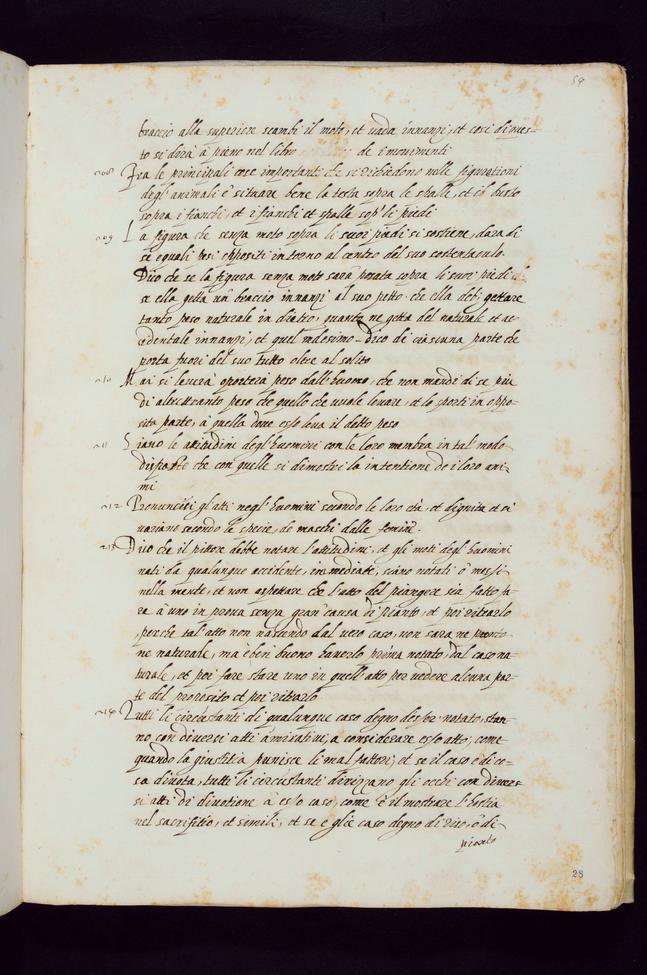 54
braccio alla superiore scambi il moto, et vada innanzi, et cosi di ques-
to si dirà à pieno nel libro de i movimenti
208 Fra le principali cose importanti che si richiedono nelle figurationi
degl'animali è situare bene la testa sopra le spalle, et il busto
sopra i fianchi, et i fianchi et spalle sop.ª li piedi
209 La figura che senza moto sopra li suoi piedi si sostiene, darà di
se equali pesi oppositi intorno al centro del suo sostentaculo.
Dico che se la figura senza moto sarà posata sopra li suoi piedi
se ella getta un braccio innanzi al suo petto che ella debe gettare
tanto peso naturale in dietro, quanto ne getta del naturale et ac-
cidentale innanzi, et quel medesimo dico di ciascuna parte che
porta fuori del suo tutto oltre al solito
210 Mai si leverà ò porterà peso dall'huomo, che non mandi di se più
di altrettanto peso che quello che vuole levare, et lo porti in oppo-
sita parte, à quella dove esso leva il detto peso
211 Siano le attitudini degl'huomini con le loro membra in tal modo
disposte che con quelle si dimostri la intentione de i loro ani-
mi
212 Pronuncisi gl'atti negl'huomini secondo le loro età, et dignità et si
variano secondo le specie, de maschi dalle femine.
213 Dico che il pittore debbe notare l'attitudini, et gli moti degl'huomini
nati da qualunque accidente, immediate, siano notati ò messi
nella mente, et non aspettare che l'atto del piangere sia fatto fa-
re à uno in prova senza gran causa di pianto, et poi ritrarlo
, perche tal'atto non nascendo dal vero caso, non sarà ne pronto
ne naturale, ma è ben buono haverlo prima notato, dal caso na-
turale, et poi fare stare uno in quell'atto per vedere alcuna par-
te del proposito et poi ritrarlo
214 Tutti li circustanti di qualunque caso degno dêsser notato, stan-
no con diversi atti amirativi, a considerare esso atto, come
quando la giustitia punisce li mal fattori, et se il caso è di co-
sa divota, tutti li circustanti dirizzano gli occhi con diver-
si atti di divotione à esso caso, come è il mostrare l'hostia
nel sacrifitio, et simili, et se e glie caso degno di riso, ò di
pianto
28